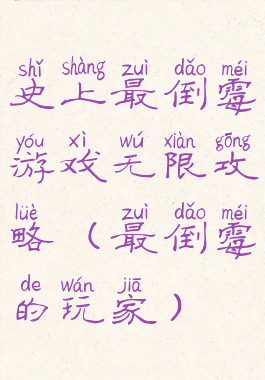 shǐ shàng zuì dǎo méi
史上最倒霉
yóu xì wú xiàn gōng
游戏无限攻
lüè zuì dǎo méi
略（最倒霉
de wán jiā
的玩家）